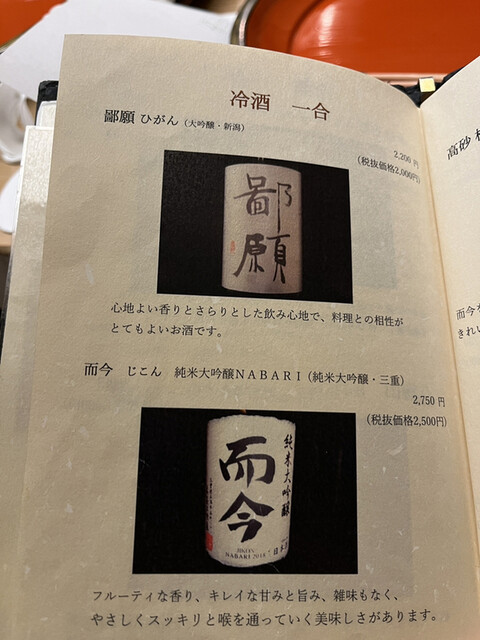 冷酒　一合
鄙願 ひがん（大吟醸・新潟）
2,200 円
(税抜価格2,000円)
鄙願
心地よい香りとさらりとした飲み心地で、料理との相性が
とてもよいお酒です。
而今　じこん　純米大吟醸ＮＡＢＡＲＩ（純米大吟醸・三重）
2,750 円
(税抜価格2,500円)
純米大吟醸
而今
NABARI
フルーティな香り、キレイな甘みと旨み、雑味もなく、
やさしくスッキリと喉を通っていく美味しさがあります。
高砂
而今
きれい